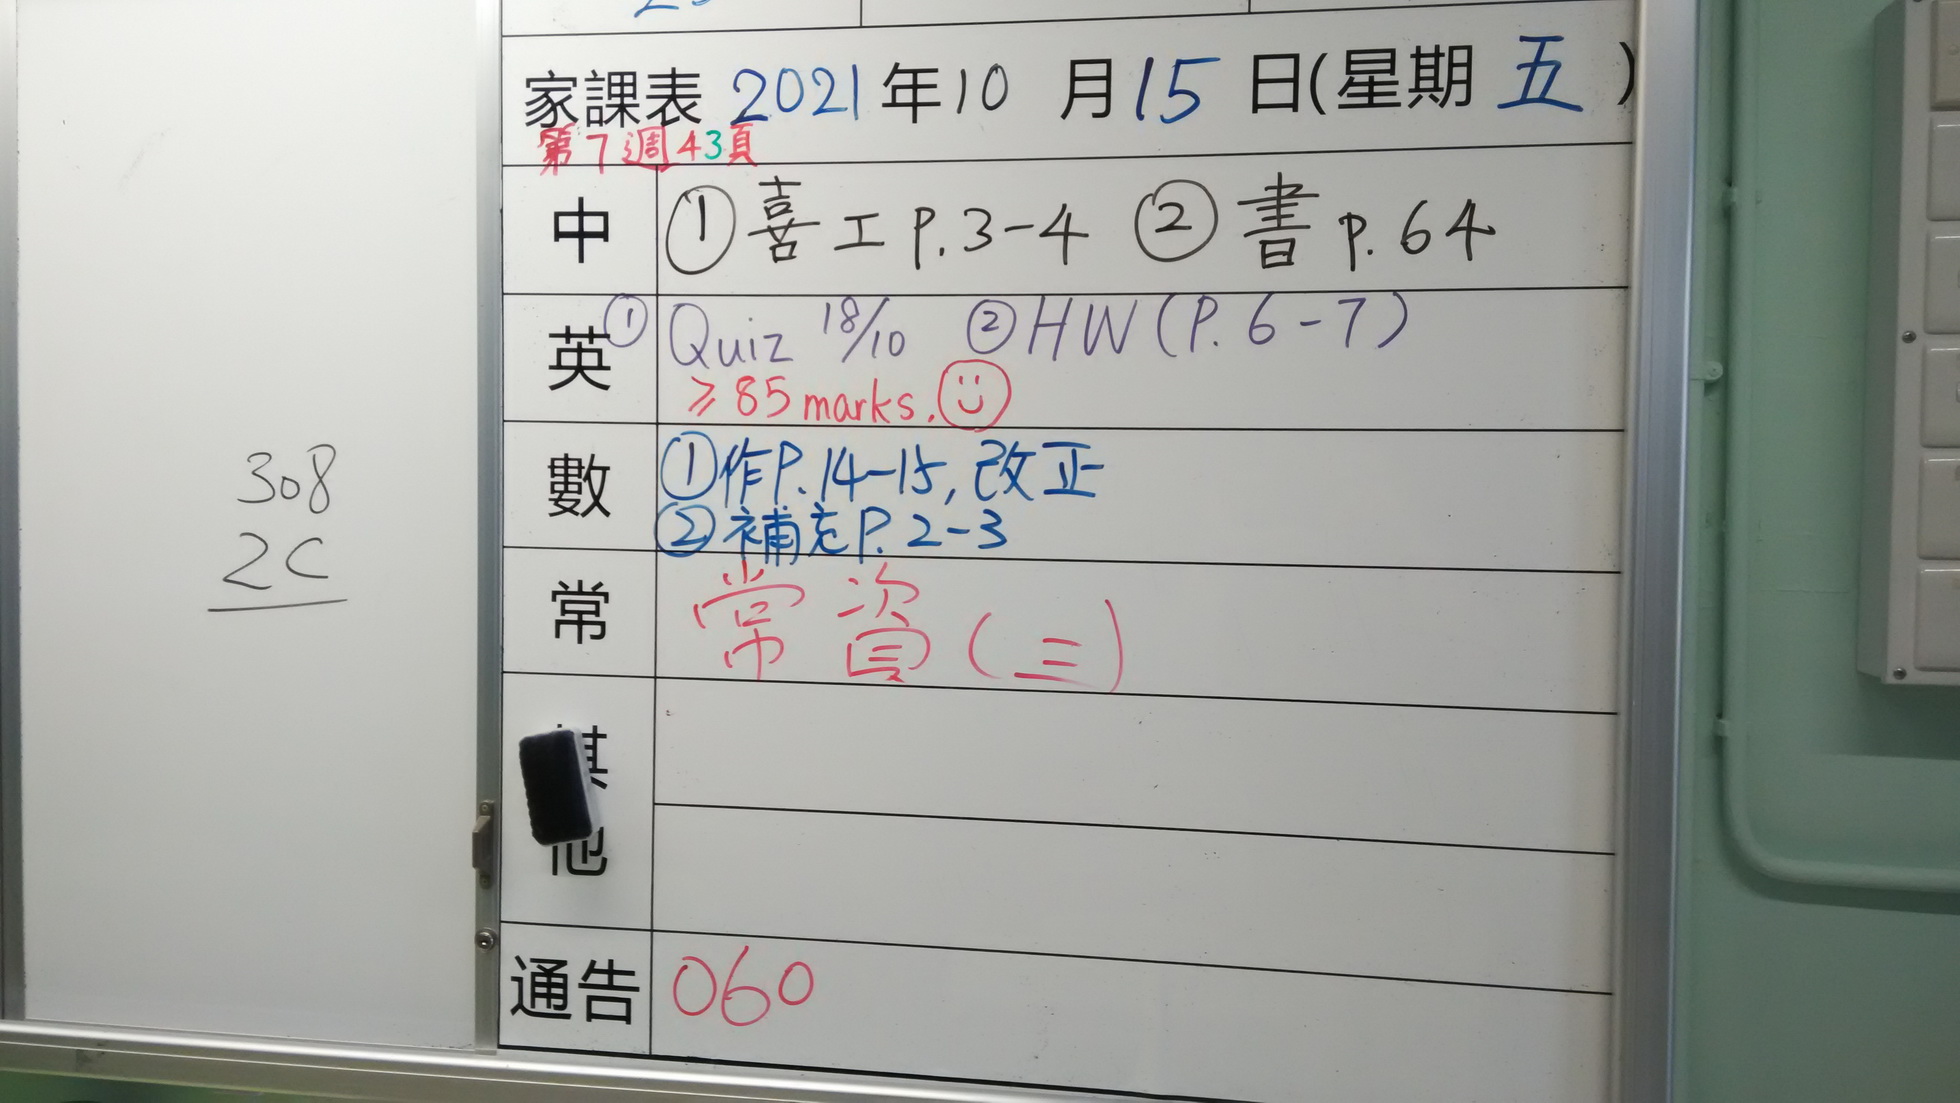 家課表 2021年10月15日(星期五)
第7週43頁
中 ①喜工P.3-4 ②書P.64
英 ①Quiz 18/10 ②HW(P.6-7)
≥85 marks.
數 ①作P.14-15,改正
②補充P.2-3
常 常資(三)
其他
通告 060
308
2C